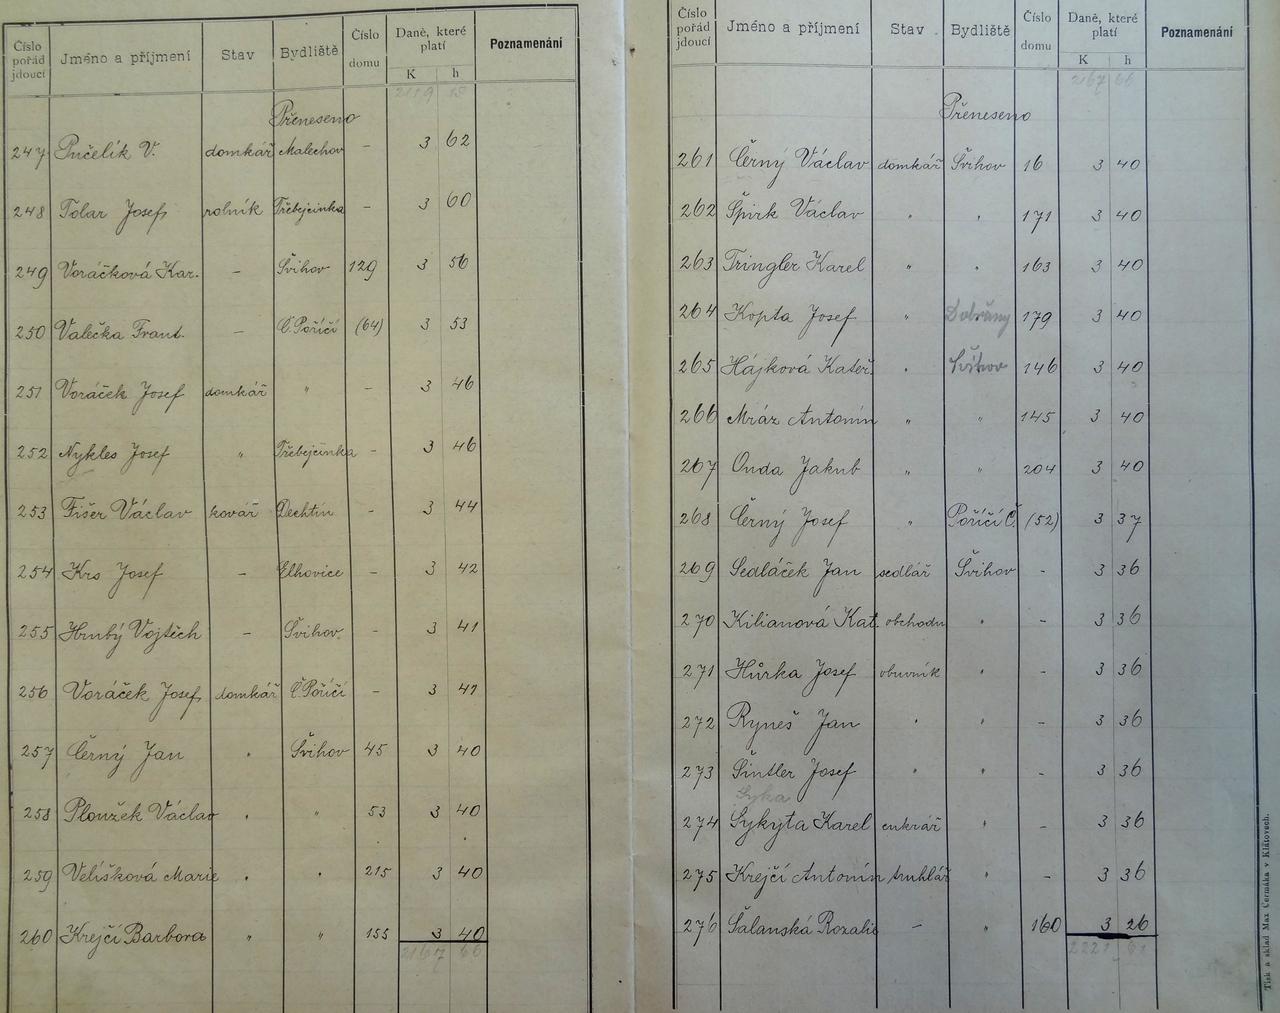 Číslo pořád jdoucí Jméno a příjmení Stav Bydliště Číslo domu Daně, které platí K h Poznamenání
2119 18
Přeneseno
247 Pučelík V. domkář Malechov - 3 62
248 Tolar Josef rolník Třebejcinka - 3 60
249 Voráčková Kar. - Švihov 129 3 56
250 Valečka Frant. - Č. Poříčí (64) 3 53
251 Voráček Josef domkář " - 3 46
252 Nykles Josef " Třebejcinka - 3 46
253 Fišer Václav kovář Dechtín - 3 44
254 Krs Josef - Elhovice - 3 42
255 Hrubý Vojtěch - Švihov. - 3 41
256 Voráček Josef domkář Č. Poříčí - 3 41
257 Černý Jan " Švihov 45 3 40
258 Ploužek Václav " " 53 3 40
259 Velíšková Marie " " 215 3 40
260 Krejčí Barbora " " 155 3 40
2167 66
Číslo pořád jdoucí Jméno a příjmení Stav Bydliště Číslo domu Daně, které platí K h Poznamenání
2167 66
Přeneseno
261 Černý Václav domkář Švihov 16 3 40
262 Špirk Václav " " 171 3 40
263 Tringler Karel " " 163 3 40
264 Kopta Josef " Dobřany 179 3 40
265 Hájková Kateř. " Švihov 146 3 40
266 Mráz Antonín " " 145 3 40
267 Onda Jakub " " 204 3 40
268 Černý Josef " Poříčí Č. (52) 3 37
269 Sedláček Jan sedlář Švihov - 3 36
270 Kilianová Kat. obchodu " - 3 36
271 Hůrka Josef obuvník " - 3 36
272 Ryneš Jan " " - 3 36
273 Šintler Josef " " - 3 36
Syka
274 Sykyta Karel cukrář " - 3 36
275 Krejčí Antonín truhlář " - 3 36
276 Šalanská Rozalie - " 160 3 26
2221 61
Tisk a sklad Max Čermáka v Klatovech.